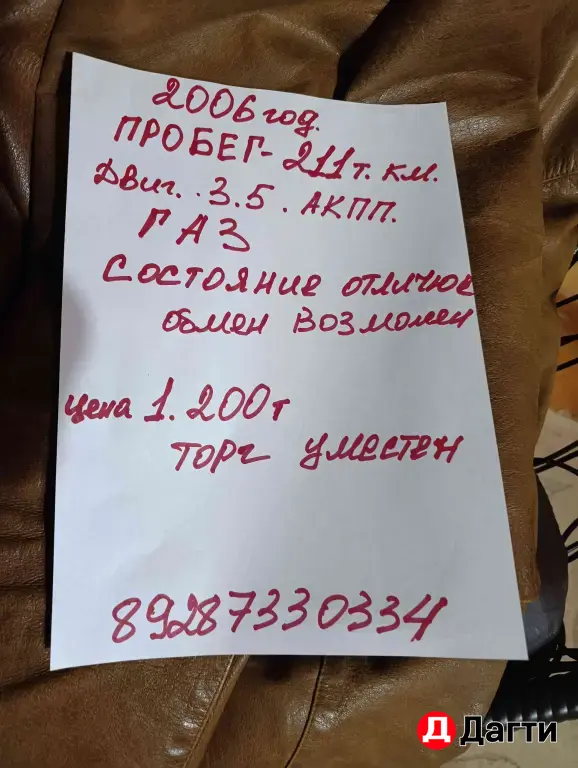 2006 год.
ПРОБЕГ - 211 т. км.
Двиг. . 3.5 . АКПП.
ГАЗ
Состояние отличное
обмен возможен
цена 1. 200 т
торг уместен
89287330334
Д Дагти